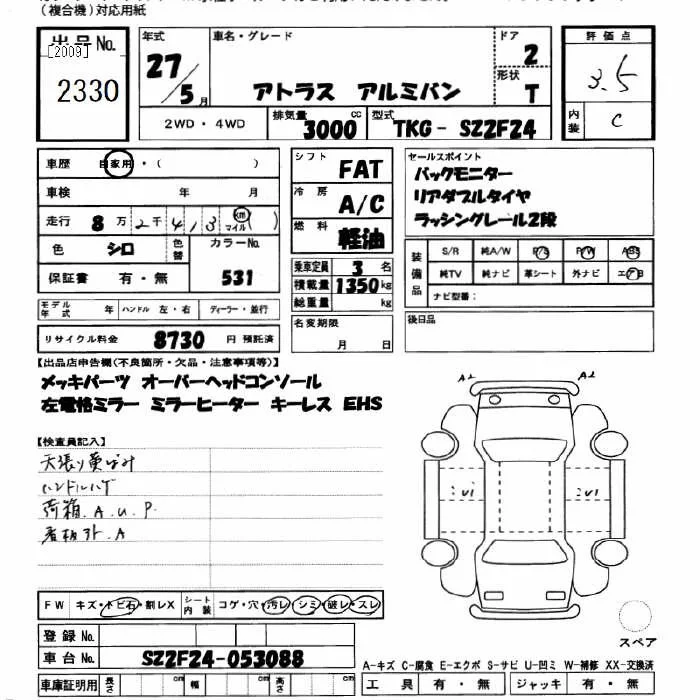 (複合機)対応用紙
出品No.
[2009]
2330
年式
27/5月
車名・グレード
アトラス アルミバン
ドア
2
形状
T
評価点
3.5
内装
C
2WD・4WD
排気量
3000 cc
型式
TKG-SZ2F24
車歴 自家用・( )
車検 年 月
走行 8万2千413 km マイル ( )
色 シロ 色替 カラーNo. 531
保証書 有・無
モデル年式 年 ハンドル 左・右 ディーラー・並行
リサイクル料金 8730 円 預託済
シフト FAT
冷房 A/C
燃料 軽油
乗車定員 3 名
積載量 1350 kg
総重量 kg
名変期限
月 日
セールスポイント
バックモニター
リアダブルタイヤ
ラッシングレール2段
装備品
S/R 純A/W P/S P/W ABS
純TV 純ナビ 革シート 外ナビ エアB
ナビ型番: ( )
後日品
【出品店申告欄(不良箇所・欠品・注意事項等)】
メッキパーツ オーバーヘッドコンソール
左電格ミラー ミラーヒーター キーレス EHS
【検査員記入】
天張り黄ばみ
ハンドルハゲ
荷箱、A、U、P、
看板外、A
A2 A2
FW キズ・トビ石・割レX シート内装 コゲ・穴・汚レ・シミ・破レ・スレ
登録No.
車台No. SZ2F24-053088
車庫証明用 長さ cm 幅 cm 高さ cm
スペア
A-キズ C-腐食 E-エクボ S-サビ U-凹ミ W-補修 XX-交換済
工具 有・無 ジャッキ 有・無